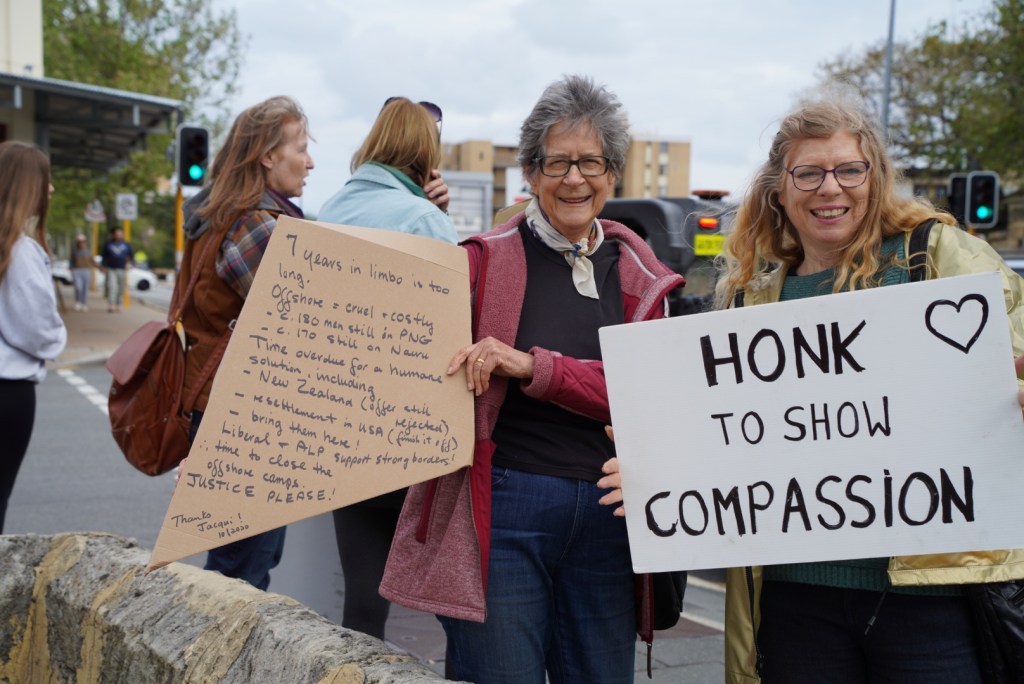 7 years in limbo is too
long.
Offshore = cruel + costly
- c. 180 men still in PNG
- c. 170 still on Nauru
Time overdue for a humane
solution, including
- New Zealand (offer still
rejected)
- resettlement in USA (finish it off)
- bring them here!
Liberal + ALP support strong borders!
∴ time to close the
offshore camps.
JUSTICE PLEASE!
Thanks
Jacqui!
10/2020
HONK
TO SHOW
COMPASSION